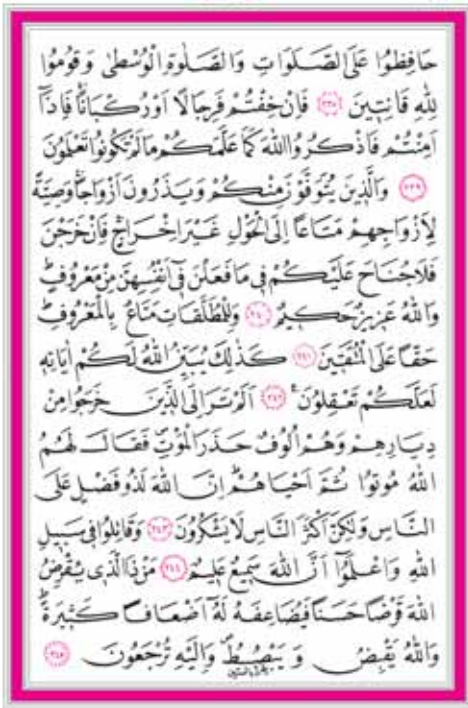 حَافِظُوا عَلَى الصَّلَوَاتِ وَالصَّلٰوةِ الْوُسْطٰى وَقُومُوا
لِلّٰهِ قَانِتِينَ ﴿٢٣٨﴾ فَاِنْ خِفْتُمْ فَرِجَالًا اَوْ رُكْبَانًا فَاِذَٓا
اَمِنْتُمْ فَاذْكُرُوا اللّٰهَ كَمَا عَلَّمَكُمْ مَا لَمْ تَكُونُوا تَعْلَمُونَ
﴿٢٣٩﴾ وَالَّذِينَ يُتَوَفَّوْنَ مِنْكُمْ وَيَذَرُونَ اَزْوَاجًا وَصِيَّةً
لِاَزْوَاجِهِمْ مَتَاعًا اِلَى الْحَوْلِ غَيْرَ اِخْرَاجٍ فَاِنْ خَرَجْنَ
فَلَا جُنَاحَ عَلَيْكُمْ فِي مَا فَعَلْنَ فِٓي اَنْفُسِهِنَّ مِنْ مَعْرُوفٍ
وَاللّٰهُ عَزِيزٌ حَكِيمٌ ﴿٢٤٠﴾ وَلِلْمُطَلَّقَاتِ مَتَاعٌ بِالْمَعْرُوفِ
حَقًّا عَلَى الْمُتَّقِينَ ﴿٢٤١﴾ كَذٰلِكَ يُبَيِّنُ اللّٰهُ لَكُمْ اٰيَاتِهِ
لَعَلَّكُمْ تَعْقِلُونَ ﴿٢٤٢﴾ اَلَمْ تَرَ اِلَى الَّذِينَ خَرَجُوا مِنْ
دِيَارِهِمْ وَهُمْ اُلُوفٌ حَذَرَ الْمَوْتِ فَقَالَ لَهُمُ
اللّٰهُ مُوتُوا ثُمَّ اَحْيَاهُمْ اِنَّ اللّٰهَ لَذُو فَضْلٍ عَلَى
النَّاسِ وَلٰكِنَّ اَكْثَرَ النَّاسِ لَا يَشْكُرُونَ ﴿٢٤٣﴾ وَقَاتِلُوا فِي سَبِيلِ
اللّٰهِ وَاعْلَمُٓوا اَنَّ اللّٰهَ سَمِيعٌ عَلِيمٌ ﴿٢٤٤﴾ مَنْ ذَا الَّذِي يُقْرِضُ
اللّٰهَ قَرْضًا حَسَنًا فَيُضَاعِفَهُ لَهُٓ اَضْعَافًا كَثِيرَةً
وَاللّٰهُ يَقْبِضُ وَيَبْصُطُ وَاِلَيْهِ تُرْجَعُونَ ﴿٢٤٥﴾